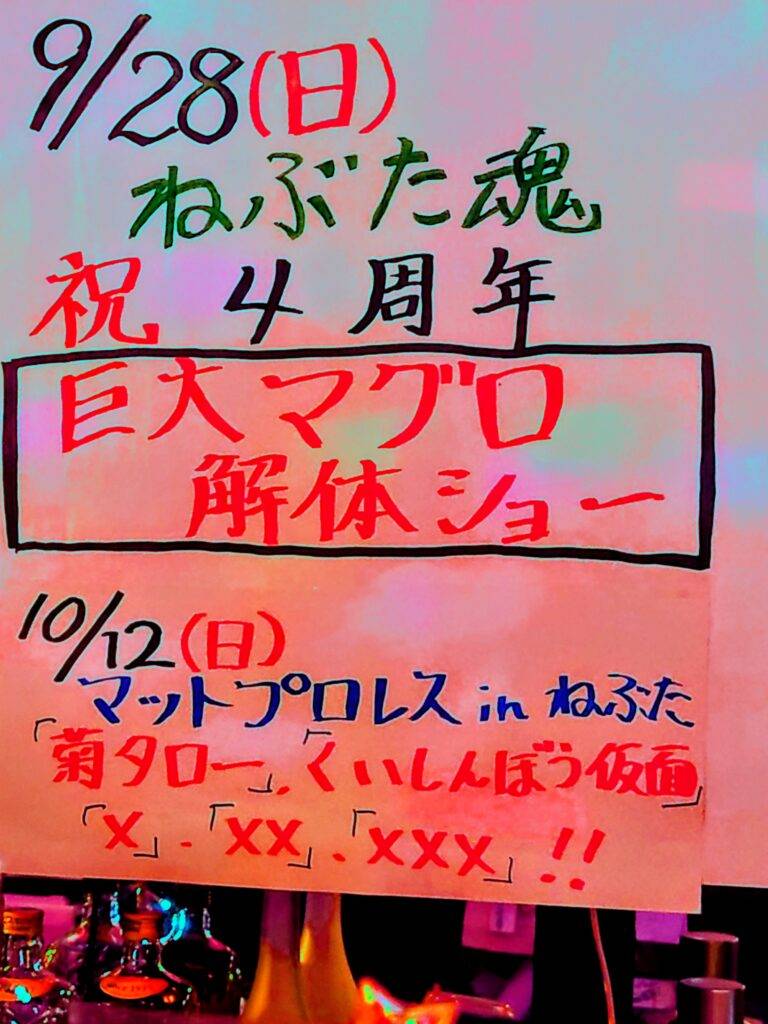 9/28(日)
ねぶた魂
祝 4周年
巨大マグロ
解体ショー
10/12(日)
マットプロレス in ねぶた
「菊タロー」、「くいしんぼう仮面」
「X」、「XX」、「XXX」!!